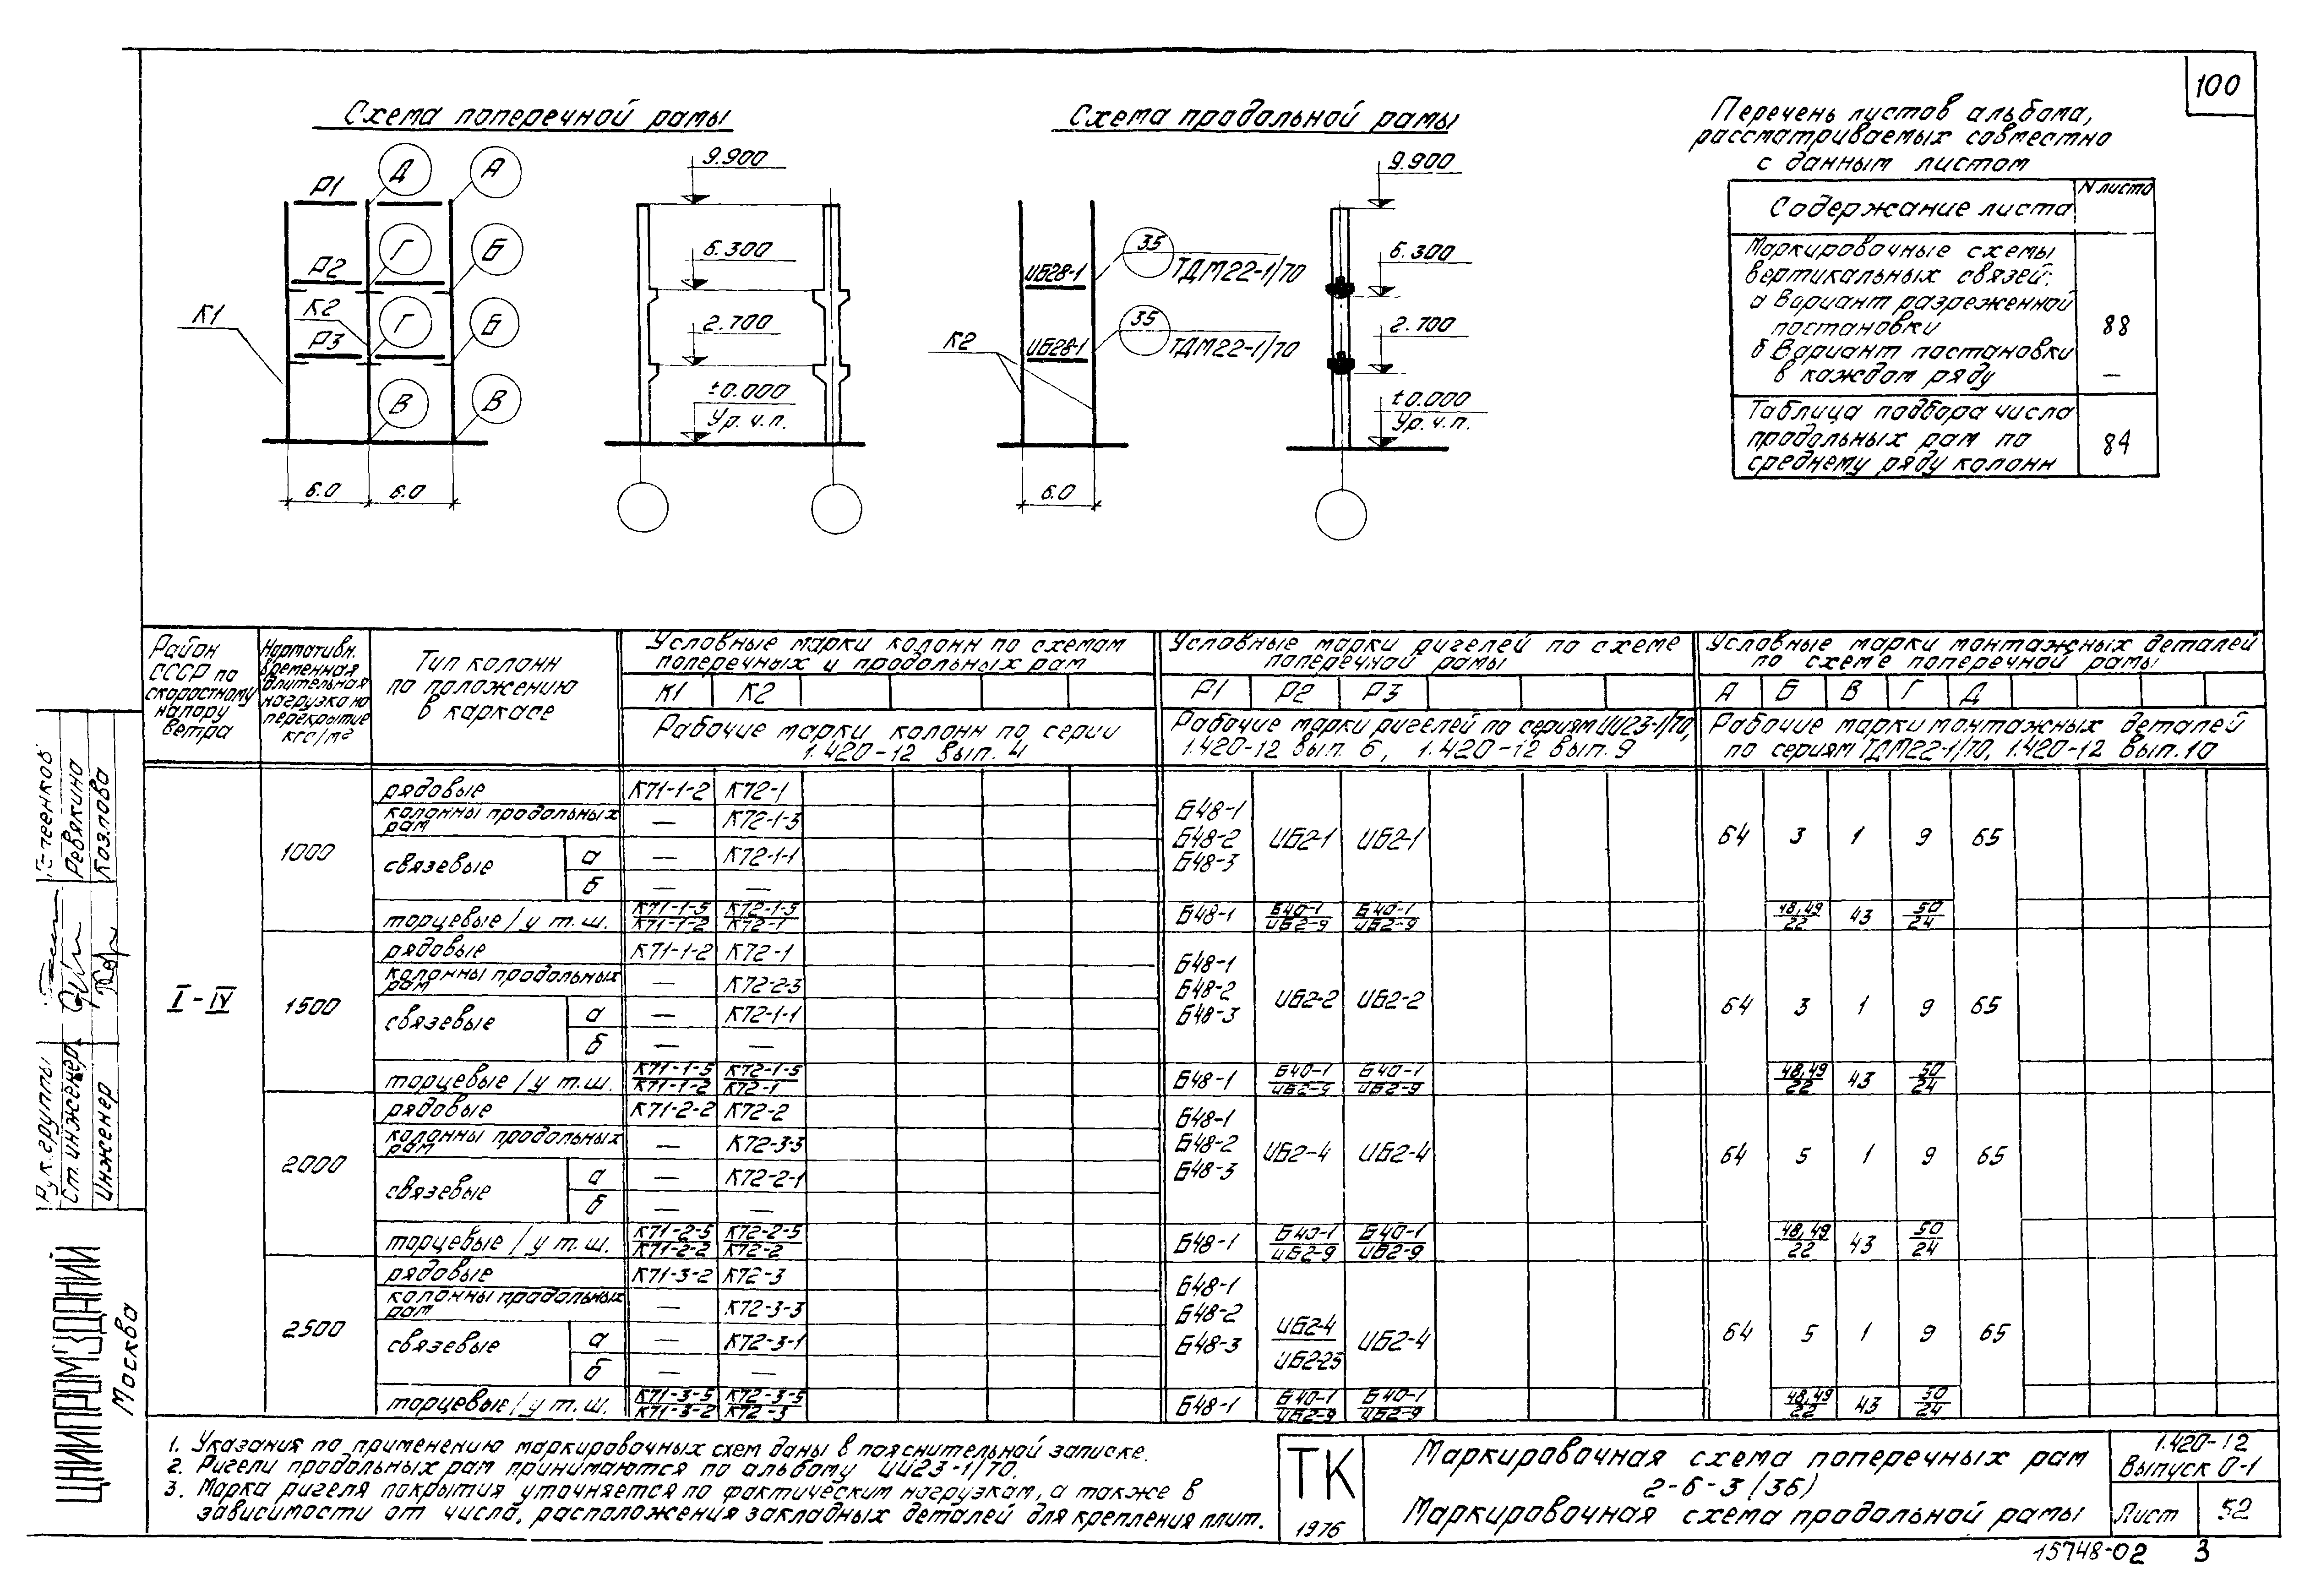 100
Схема поперечной рамы
Р1
Д
А
Р2
Г
Б
К1
К2
Г
Б
Р3
В
В
6.0
6.0
9.900
6.300
2.700
±0.000
Ур. ч. п.
Схема продольной рамы
ИБ28-1
35
ТДМ22-1/70
ИБ28-1
35
ТДМ22-1/70
К2
6.0
9.900
6.300
2.700
±0.000
Ур. ч. п.
Перечень листов альбома,
рассматриваемых совместно
с данным листом
Содержание листа
N листа
Маркировочные схемы
вертикальных связей:
а Вариант разреженной
постановки
88
б Вариант постановки
в каждом ряду
—
Таблица подбора числа
продольных рам по
среднему ряду колонн
84
Район
СССР по
скоростному
напору
ветра
Нормативн.
временная
длительная
нагрузка на
перекрытие
кгс/м²
Тип колонн
по положению
в каркасе
Условные марки колонн по схемам
поперечных и продольных рам
К1 К2
Рабочие марки колонн по серии
1.420-12 вып. 4
Условные марки ригелей по схеме
поперечной рамы
Р1 Р2 Р3
Рабочие марки ригелей по сериям ИИ23-1/70,
1.420-12 вып. 6, 1.420-12 вып. 9
Условные марки монтажных деталей
по схеме поперечной рамы
А Б В Г Д
Рабочие марки монтажных деталей
по сериям ТДМ22-1/70, 1.420-12 вып. 10
I-IV
1000
рядовые К71-1-2 К72-1
колонны продольных
рам — К72-1-3
связевые
а — К72-1-1
б — —
Б48-1
Б48-2 ИБ2-1 ИБ2-1
Б48-3
64 3 1 9 65
торцевые / у т.ш. К71-1-5/К71-1-2 К72-1-5/К72-1 Б48-1 Б40-1/ИБ2-9 Б40-1/ИБ2-9 48,49/22 43 50/24
1500
рядовые К71-1-2 К72-1
колонны продольных
рам — К72-2-3
связевые
а — К72-1-1
б — —
Б48-1
Б48-2 ИБ2-2 ИБ2-2
Б48-3
64 3 1 9 65
торцевые / у т.ш. К71-1-5/К71-1-2 К72-1-5/К72-1 Б48-1 Б40-1/ИБ2-9 Б40-1/ИБ2-9 48,49/22 43 50/24
2000
рядовые К71-2-2 К72-2
колонны продольных
рам — К72-3-3
связевые
а — К72-2-1
б — —
Б48-1
Б48-2 ИБ2-4 ИБ2-4
Б48-3
64 5 1 9 65
торцевые / у т.ш. К71-2-5/К71-2-2 К72-2-5/К72-2 Б48-1 Б40-1/ИБ2-9 Б40-1/ИБ2-9 48,49/22 43 50/24
2500
рядовые К71-3-2 К72-3
колонны продольных
рам — К72-3-3
связевые
а — К72-3-1
б — —
Б48-1
Б48-2
Б48-3 ИБ2-4/ИБ2-25 ИБ2-4
64 5 1 9 65
торцевые / у т.ш. К71-3-5/К71-3-2 К72-3-5/К72-3 Б48-1 Б40-1/ИБ2-9 Б40-1/ИБ2-9 48,49/22 43 50/24
1. Указания по применению маркировочных схем даны в пояснительной записке.
2. Ригели продольных рам принимаются по альбому ИИ23-1/70.
3. Марка ригеля покрытия уточняется по фактическим нагрузкам, а также в
зависимости от числа, расположения закладных деталей для крепления плит.
ТК
1976
Маркировочная схема поперечных рам
2-6-3 (36)
Маркировочная схема продольной рамы
1.420-12
Выпуск 0-1
Лист 52
15748-02 3
Рук. группы
Ст. инженер Ревякина
Инженер Козлова
ЦНИИПРОМЗДАНИЙ
Москва